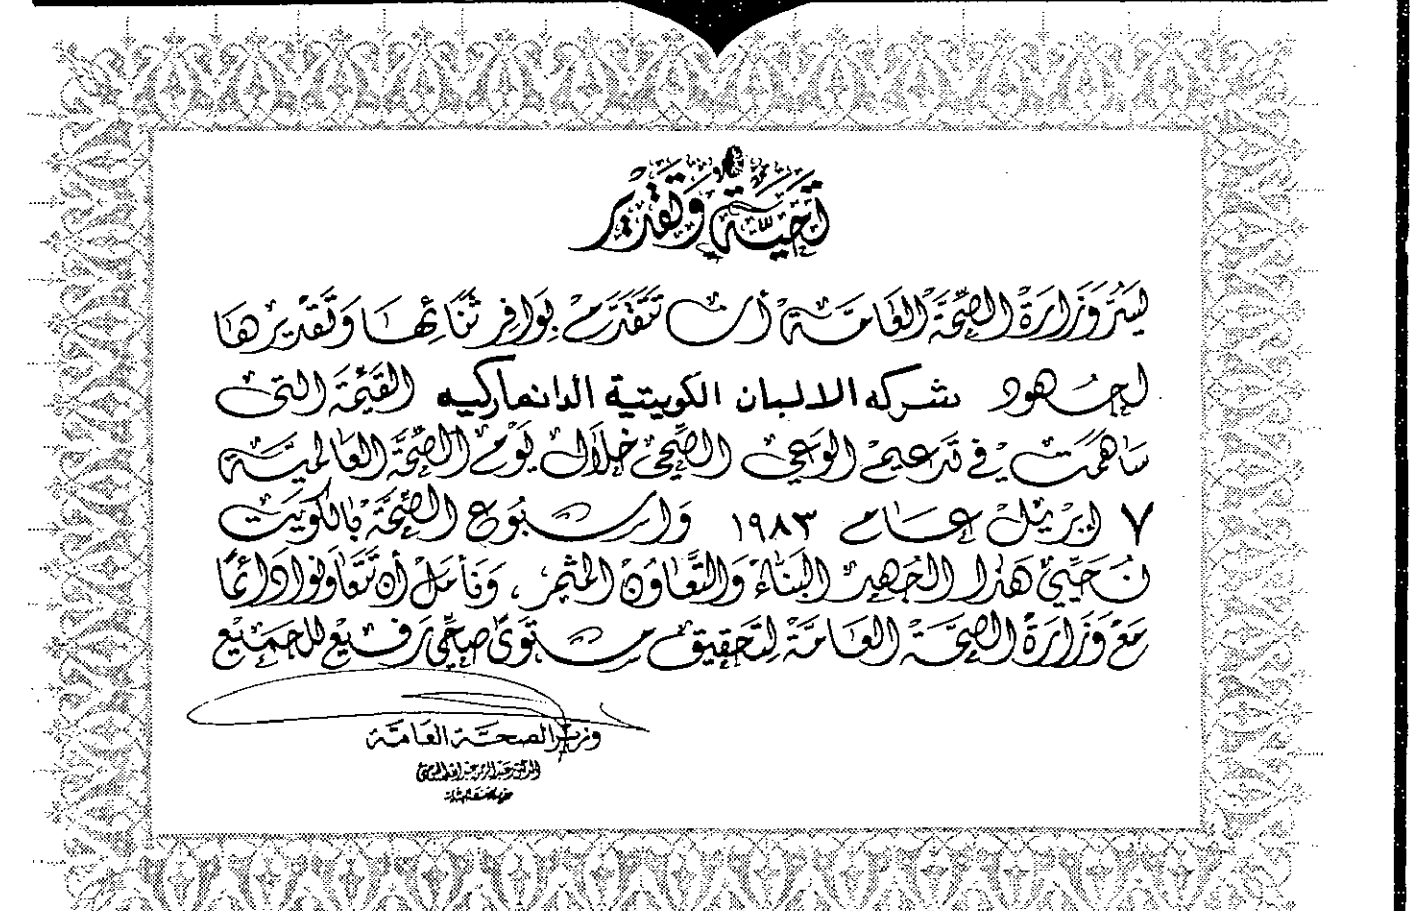 تحية وتقدير
يسر وزارة الصحة العامة أن تتقدم بوافر ثنائها وتقديرها
لجهود شركه الالبان الكويتية الدانماركيه القيمة التى
ساهمت في تدعيم الوعي الصحي خلال يوم الصحة العالمية
٧ إبريل عام ١٩٨٣ وأسبوع الصحة بالكويت
نحيي هذا الجهد البناء والتعاون المثمر ، ونأمل أن تتعاونوا دائما
مع وزارة الصحة العامة لتحقيق مستوى صحي رفيع للجميع
وزير الصحة العامة